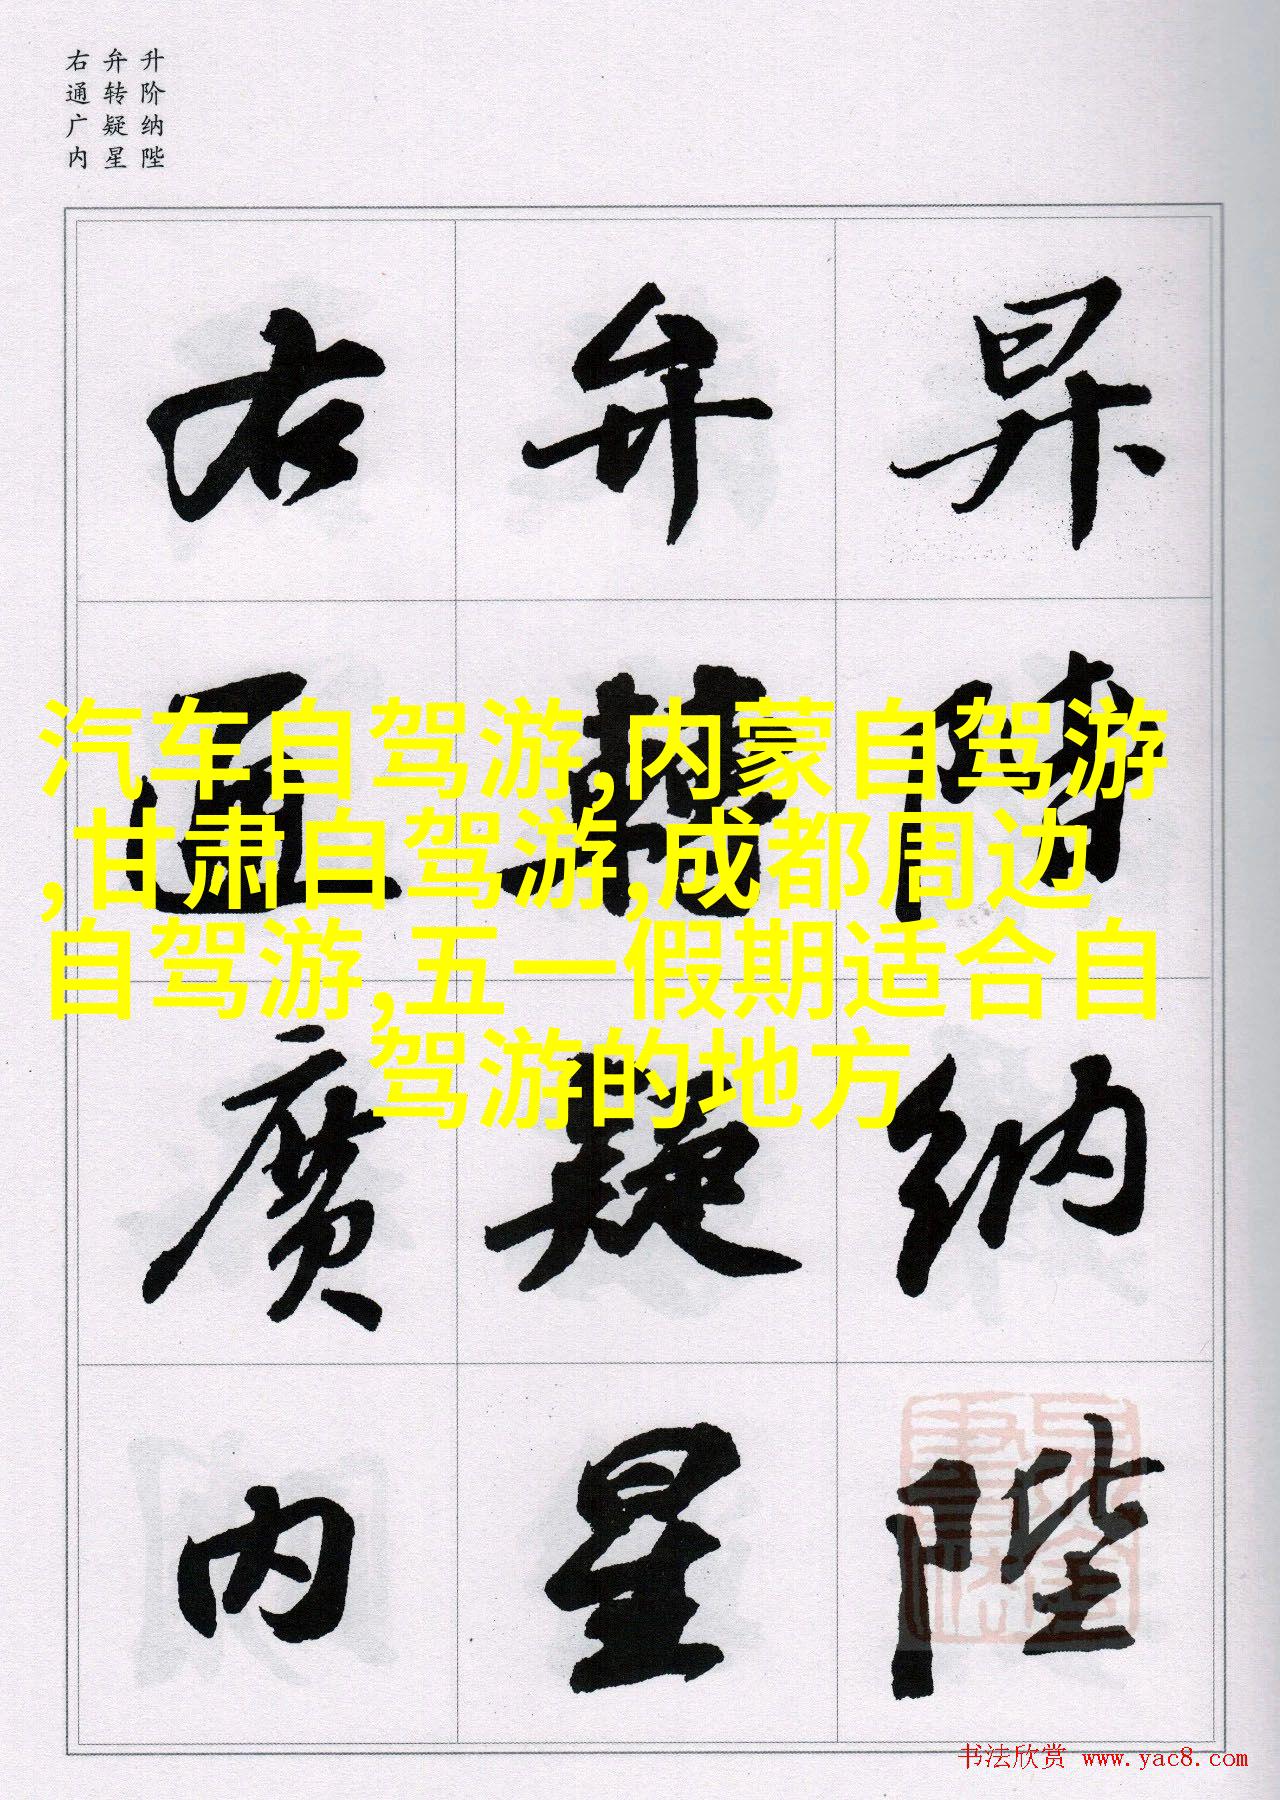 升阶纳陛
弁转疑星
右通广内
昇階納陛
弁轉疑星
右通廣内
汽车自驾游,内蒙自驾游
,甘肃自驾游,成都周边
自驾游,五一假期适合自
驾游的地方
书法欣赏 www.yac8.com